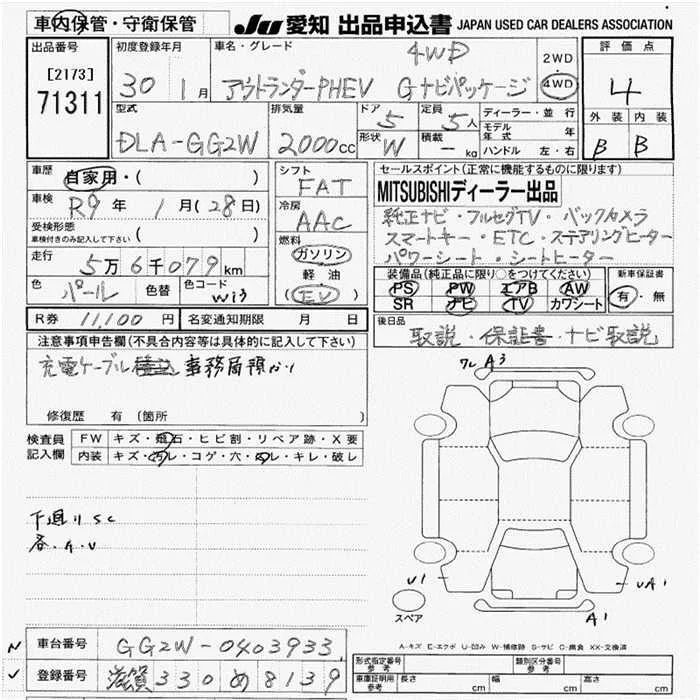 車内保管・守衛保管 JU 愛知 出品申込書 JAPAN USED CAR DEALERS ASSOCIATION
出品番号 [2173] 71311
初度登録年月 30 1月
車名・グレード 4WD アウトランダーPHEV Gナビパッケージ
2WD 4WD
評価点 4
外装 内装
B B
型式 DLA-GG2W
排気量 2000cc
ドア 5
定員 5人
形状 W
積載 - kg
ディーラー・並行
モデル年式 年
ハンドル 左・右
車歴 自家用・( )
車検 R9年 1月(28日)
受検形態 ( )
車検付きのみ記入して下さい
走行 5万6千079km
色 パール 色替 色コード W13
シフト FAT
冷房 AAC
燃料 ガソリン
軽油
(EV)
セールスポイント(正常に機能するものに限ります)
MITSUBISHIディーラー出品
純正ナビ・フルセグTV・バックカメラ
スマートキー・ETC・ステアリングヒーター
パワーシート・シートヒーター
装備品(純正品に限り○をつけてください) 新車保証書
PS PW エアB AW 有・無
SR ナビ TV カワシート
R券 11,100円 名変通知期限 月 日
後日品 取説・保証書・ナビ取説
注意事項申告欄(不具合内容等は具体的に記入して下さい)
充電ケーブル 事務局預かり
修復歴 有 (箇所 )
検査員記入欄
FW キズ・飛石・ヒビ割・リペア跡・X要
内装 キズ・汚レ・コゲ・穴・ヌレ・キレ・破レ
ワレ A3
下廻りSC
各.A.U
U1 UA1
スペア A1
A-キズ E-エクボ U-凹み W-補修跡 S-サビ C-腐食 XX-交換済
N 車台番号 GG2W-0403933
✓ 登録番号 滋賀 330 め 8139
形式指定番号 参考 類別区分番号 参考
車庫証明用 参考 長さ cm 幅 cm 高さ cm